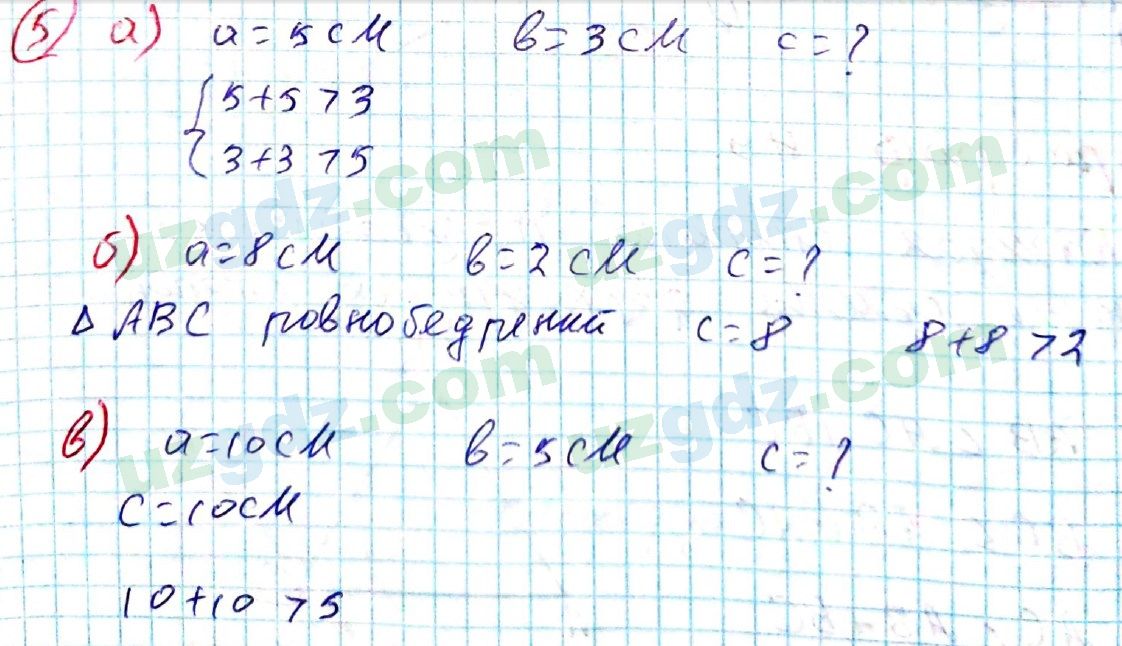 5 а) a = 5 см b = 3 см c = ?
5+5 > 3
3+3 > 5
б) a = 8 см b = 2 см c = ?
Δ ABC ровнобедрений c = 8 8+8 > 2
в) a = 10 см b = 5 см c = ?
c = 10 см
10+10 > 5
uzgdz.com
uzgdz.com
uzgdz.com
uzgdz.com